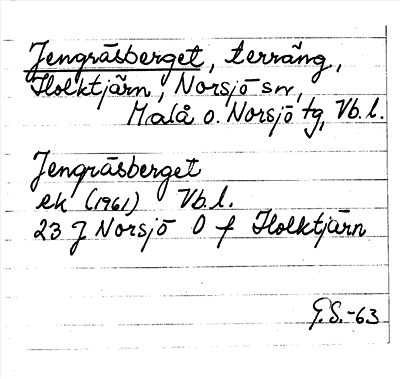 Jengräsberget, terräng,
Holktjärn, Norsjö sn,
Malå o. Norsjö tg, Vb.l.
Jengräsberget
ek (1961) Vb.l.
23 J Norsjö O f Holktjärn
G.S.-63